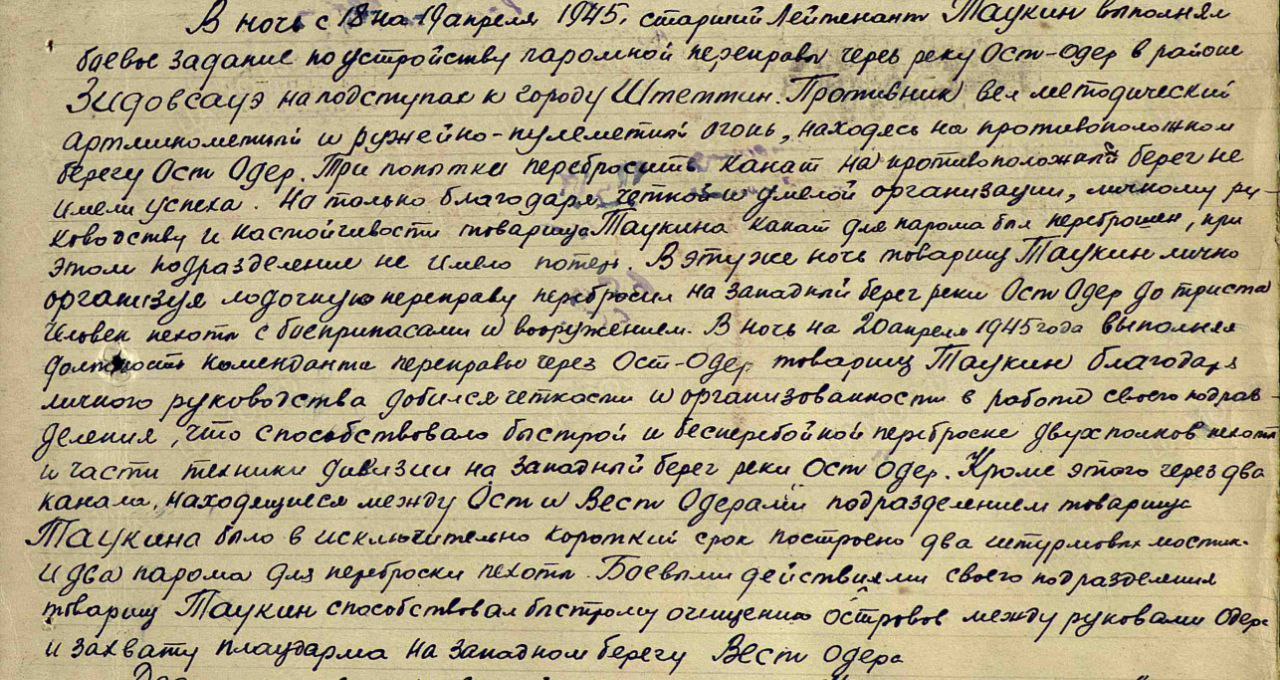 В ночь с 18 на 19 апреля 1945, старший Лейтенант Таукин выполнял
боевое задание по устройству паромной переправы через реку Ост-Одер в районе
Зидовсауэ на подступах к городу Штеттин. Противник вел методический
артминометный и ружейно-пулеметный огонь, находясь на противоположном
берегу Ост Одер. Три попытки перебросить канат на противоположный берег не
имели успеха. На только благодаря четкой и умелой организации, личному ру-
ководству и настойчивости товарища Таукина канат для парома был переброшен, при
этом подразделение не имело потерь. В эту же ночь товарищ Таукин лично
организуя лодочную переправу перебросил на западный берег реки Ост Одер до триста
человек пехоты с боеприпасами и вооружением. В ночь на 20 апреля 1945 года выполняя
должность коменданта переправы через Ост-Одер товарищ Таукин благодаря
личного руководства добился четкости и организованности в работе своего подраз-
деления, что способствовало быстрой и бесперебойной переброске двух полков пехоты
и части техники дивизии на западный берег реки Ост Одер. Кроме этого через два
канала, находящиеся между Ост и Вест Одерами подразделением товарища
Таукина было в исключительно короткий срок построено два штурмовых мостик
и два парома для переброски пехоты. Боевыми действиями своего подразделения
товарищ Таукин способствовал быстрому очищению островов между рукавами Одера
и захвату плацдарма на западном берегу Вест Одера